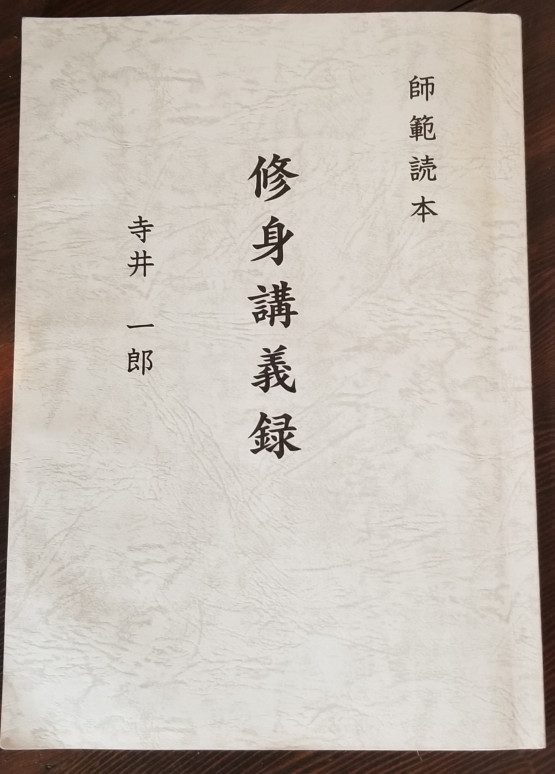 師範読本
修身講義録
寺井 一郎